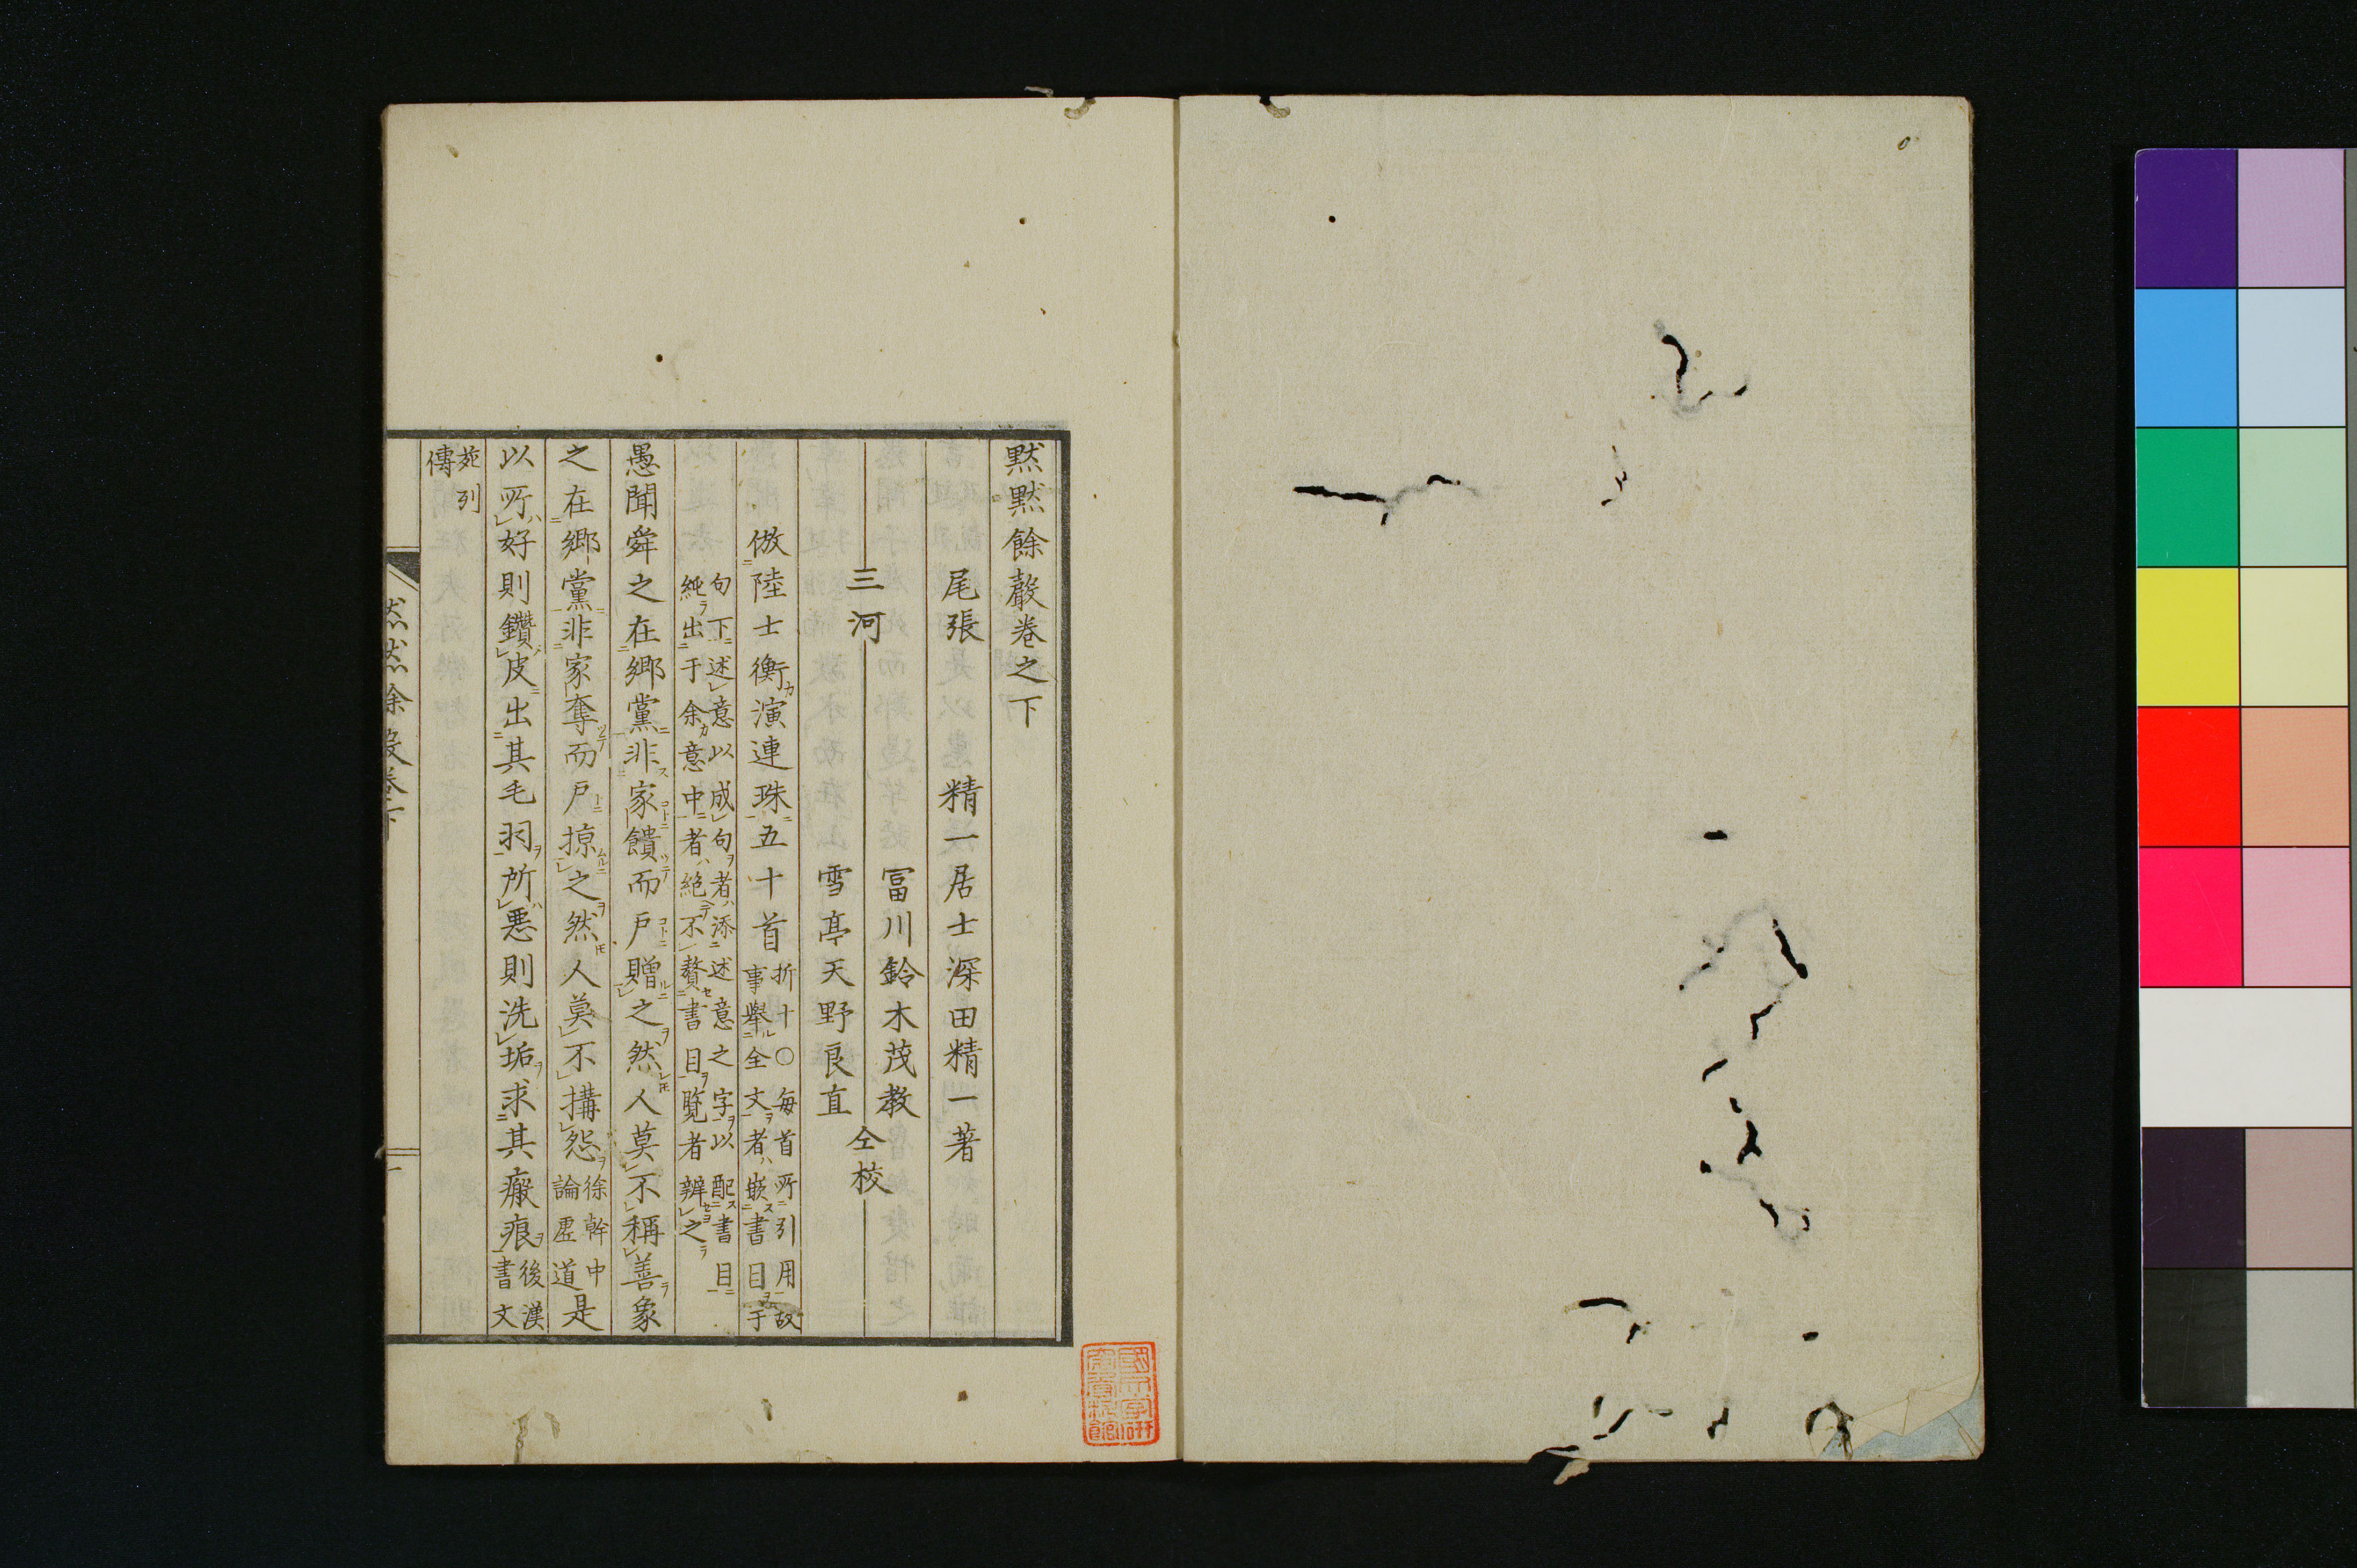 黙黙餘聲卷之下
尾張　精一居士深田精一著
三河　冨川鈴木茂教
雪亭天野良直　仝校
倣陸士衡演連珠五十首
折十〇每首所引用故
事舉全文者嵌書目于
句下述意以成句者添述意之字以配書目
純出于余意中者絶不贅書目覽者辨之
愚聞舜之在鄉黨非家饋而戶贈之然人莫不稱善象
之在鄉黨非家奪而戶掠之然人莫不搆怨
徐幹中
論虛道
是
以所好則鑽皮出其毛羽所惡則洗垢求其瘢痕
後漢
書文
苑列
傳